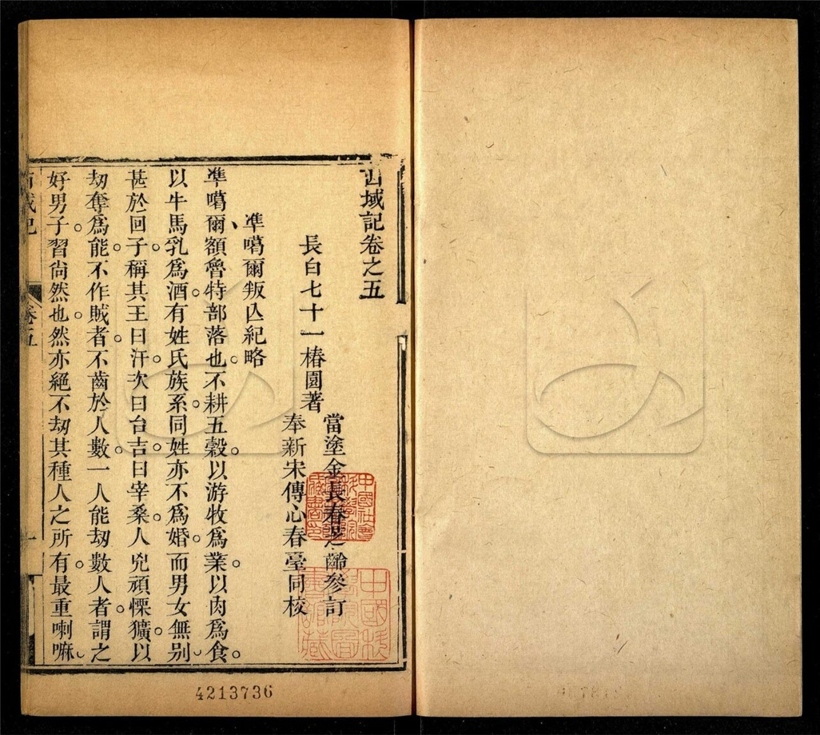 西域記卷之五
長白七十一椿園著
當塗金長春芝齡參訂
奉新宋傳心春臺同校
準噶爾叛亾紀略
準噶爾額魯特部落也不耕五穀。以游牧爲業。以肉爲食。
以牛馬乳爲酒。有姓氏族系。同姓亦不爲婚。而男女無别
甚於回子。稱其王曰汗。次曰台吉。曰宰桑。人兇頑慓獷。以
刼奪爲能。不作賊者。不齒於人數。一人能刼數人者。謂之
好男子。習尙然也。然亦絕不刼其種人之所有。最重喇嘛
西域記
卷五
一
4213736